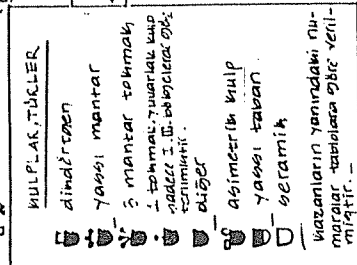 KULPLAR, TÜRLER
dindörtgen
yassı mantar
mantar tokmak
tokmak, yuvarlak kulp
sadece I. II. bölgelerde
diğer
asimetrik kulp
yassı taban
seramik
kazanların yanındaki nu-
maralar tablolara göre veril-
miştir.